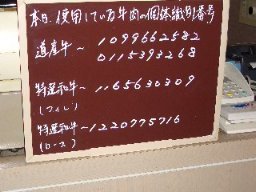 本日使用している牛肉の個体識別番号
道産牛～ 1099662582
0115393268
特選和牛～ 1165630309
(フィレ)
特選和牛～1220775716
(ロース)